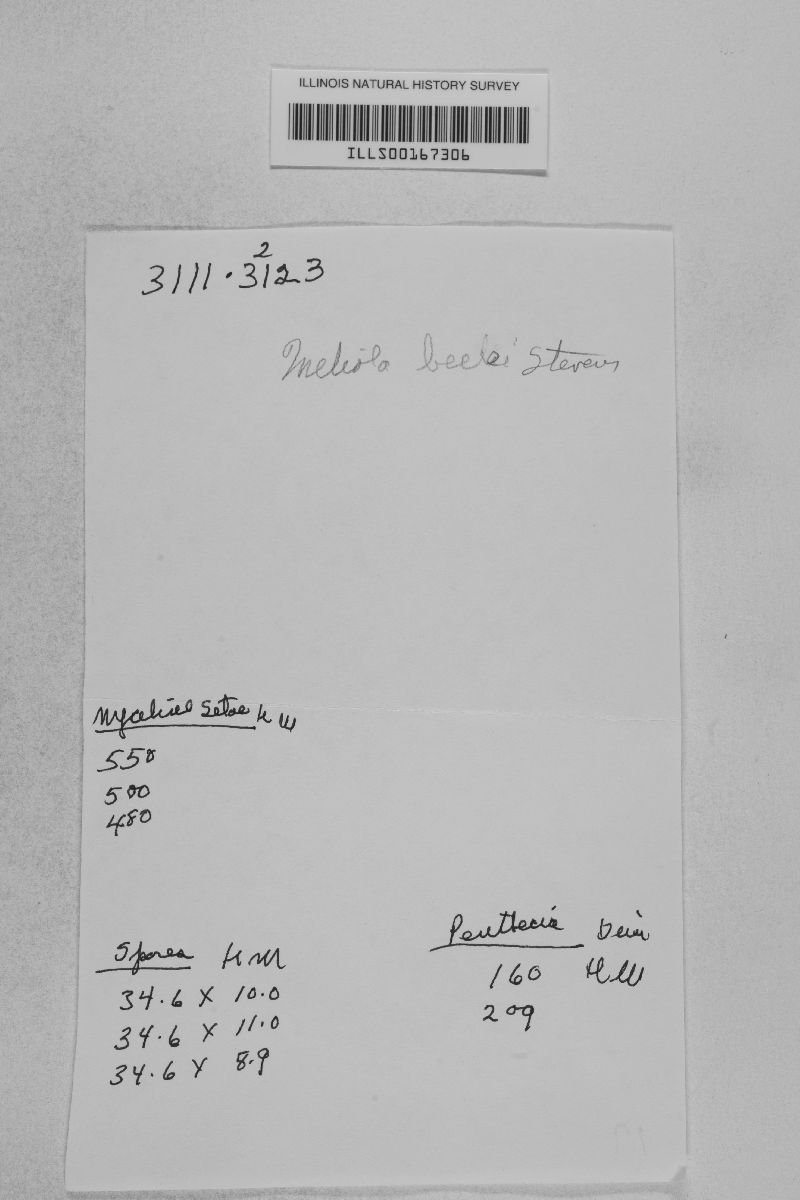 ILLINOIS NATURAL HISTORY SURVEY
ILLS00167306
2
3111.3123
Meliola Stevens
Mycelial Setae
550
500
480
Perithecia Diam
160
209
Spores
34.6 X 10.0
34.6 X 11.0
34.6 X 8.9